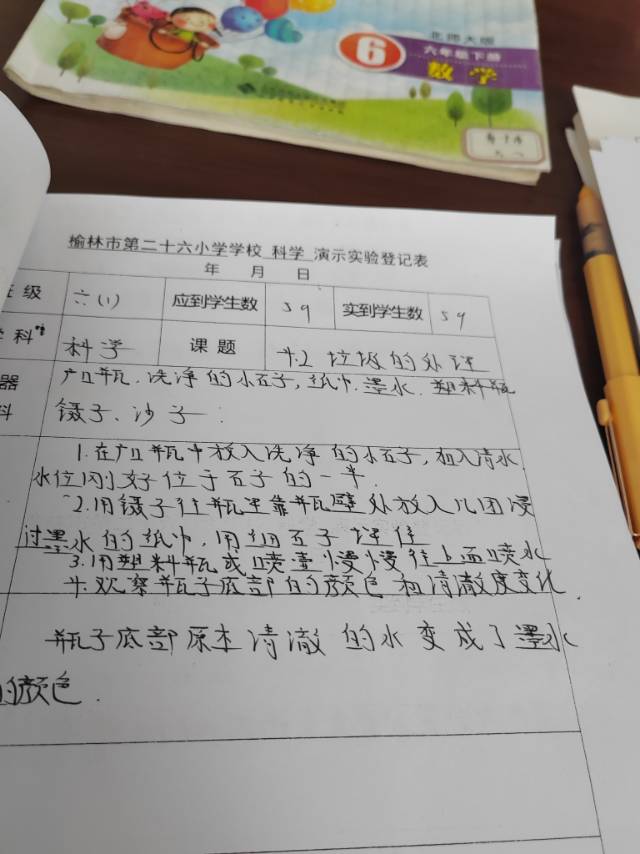 北师大版
6
六年级下册
数学
榆林市第二十六小学学校 科学 演示实验登记表
年 月 日
级 六(1) 应到学生数 59 实到学生数 59
科 科学 课题 4.2 垃圾的处理
器
科
广口瓶、洗净的小石子,纸巾、墨水、塑料瓶
镊子、沙子.
1.在广口瓶中放入洗净的小石子,加入清水
水位刚好位于石子的一半.
2.用镊子往瓶里靠瓶壁处放入几团浸
过墨水的纸巾,用细石子埋住
3.用塑料瓶或喷壶慢慢往上面喷水
4.观察瓶子底部的颜色和清澈度变化.
瓶子底部原本清澈的水变成了墨水
的颜色.